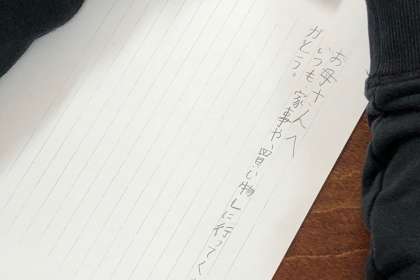 お母さんへ
いつも家事や、買い物しに行ってく
がとう。